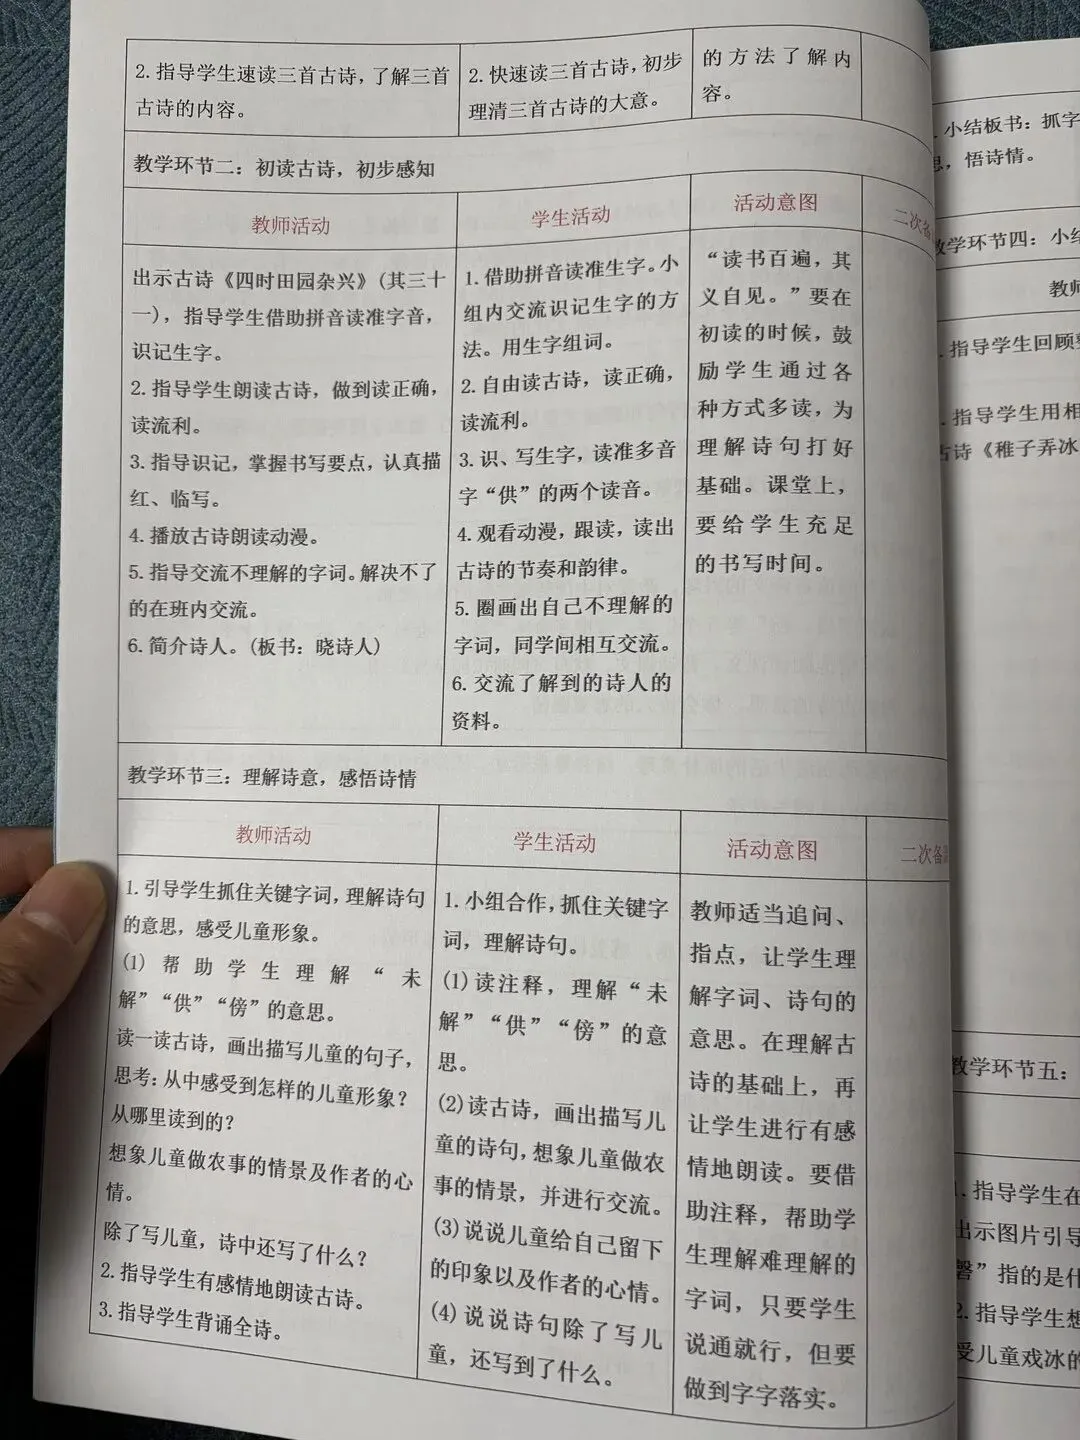 2.指导学生速读三首古诗，了解三首
古诗的内容。
2.快速读三首古诗，初步
理清三首古诗的大意。
的方法了解内
容。
教学环节二：初读古诗，初步感知
教师活动
学生活动
活动意图
二次备
出示古诗《四时田园杂兴》(其三十
一)，指导学生借助拼音读准字音，
识记生字。
2.指导学生朗读古诗，做到读正确，
读流利。
3.指导识记，掌握书写要点，认真描
红、临写。
4.播放古诗朗读动漫。
5.指导交流不理解的字词。解决不了
的在班内交流。
6.简介诗人。(板书：晓诗人)
1.借助拼音读准生字。小
组内交流识记生字的方
法。用生字组词。
2.自由读古诗，读正确，
读流利。
3.识、写生字，读准多音
字“供”的两个读音。
4.观看动漫，跟读，读出
古诗的节奏和韵律。
5.圈画出自己不理解的
字词，同学间相互交流。
6.交流了解到的诗人的
资料。
“读书百遍，其
义自见。”要在
初读的时候，鼓
励学生通过各
种方式多读，为
理解诗句打好
基础。课堂上，
要给学生充足
的书写时间。
教学环节三：理解诗意，感悟诗情
教师活动
学生活动
活动意图
二次备
1.引导学生抓住关键字词，理解诗句
的意思，感受儿童形象。
(1)帮助学生理解“未
解”“供”“傍”的意思。
读一读古诗，画出描写儿童的句子，
思考：从中感受到怎样的儿童形象？
从哪里读到的？
想象儿童做农事的情景及作者的心
情。
除了写儿童，诗中还写了什么？
2.指导学生有感情地朗读古诗。
3.指导学生背诵全诗。
1.小组合作，抓住关键字
词，理解诗句。
(1)读注释，理解“未
解”“供”“傍”的意
思。
(2)读古诗，画出描写儿
童的诗句，想象儿童做农
事的情景，并进行交流。
(3)说说儿童给自己留下
的印象以及作者的心情。
(4)说说诗句除了写儿
童，还写到了什么。
教师适当追问、
指点，让学生理
解字词、诗句的
意思。在理解古
诗的基础上，再
让学生进行有感
情地朗读。要借
助注释，帮助学
生理解难理解的
字词，只要学生
说通就行，但要
做到字字落实。
小结板书：抓字
思，悟诗情。
教学环节四：小结
教师
指导学生回顾
指导学生用相
古诗《稚子弄冰
教学环节五：
1.指导学生在
出示图片引导
磬”指的是什
2.指导学生想
受儿童戏冰的